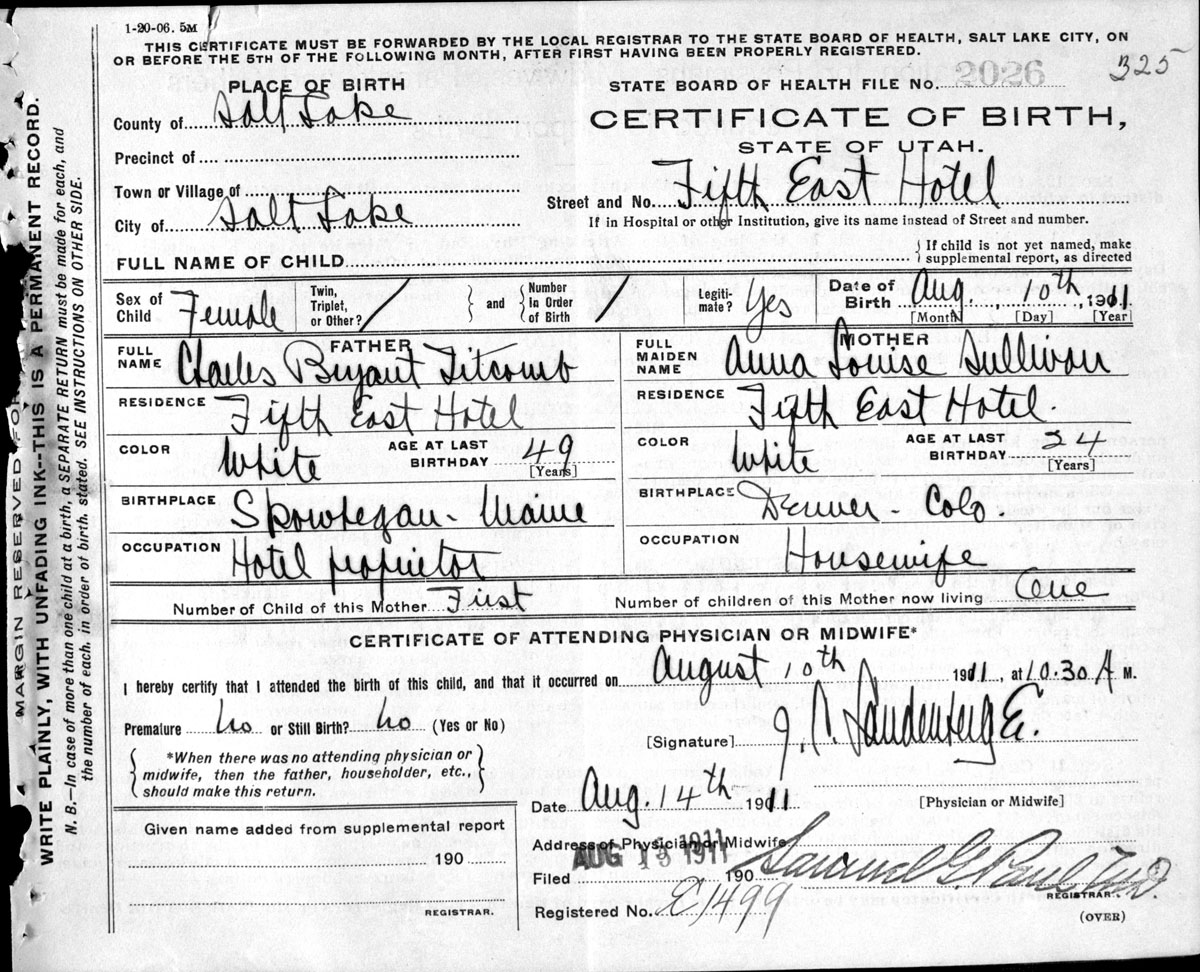 1-20-06. 5M
THIS CERTIFICATE MUST BE FORWARDED BY THE LOCAL REGISTRAR TO THE STATE BOARD OF HEALTH, SALT LAKE CITY, ON
OR BEFORE THE 5TH OF THE FOLLOWING MONTH, AFTER FIRST HAVING BEEN PROPERLY REGISTERED.
325
PLACE OF BIRTH
STATE BOARD OF HEALTH FILE No. 2026
County of Salt Lake
CERTIFICATE OF BIRTH,
STATE OF UTAH.
Precinct of
Town or Village of
Street and No. Fifth East Hotel
City of Salt Lake
If in Hospital or other Institution, give its name instead of Street and number.
FULL NAME OF CHILD
{ If child is not yet named, make
supplemental report, as directed
Sex of Child Female
Twin, Triplet, or Other? /
} and {
Number In Order of Birth /
Legitimate? Yes
Date of Birth Aug. 10th, 1911
[Month] [Day] [Year]
FATHER
FULL NAME Charles Bryant Titcomb
MOTHER
FULL MAIDEN NAME Anna Louise Sullivan
RESIDENCE Fifth East Hotel
RESIDENCE Fifth East Hotel.
COLOR White
AGE AT LAST BIRTHDAY 49
[Years]
COLOR White
AGE AT LAST BIRTHDAY 24
[Years]
BIRTHPLACE Skowhegan - Maine
BIRTHPLACE Denver - Colo.
OCCUPATION Hotel proprietor
OCCUPATION Housewife
Number of Child of this Mother First
Number of children of this Mother now living One
CERTIFICATE OF ATTENDING PHYSICIAN OR MIDWIFE*
I hereby certify that I attended the birth of this child, and that it occurred on August 10th 1911, at 10.30 A M.
Premature No or Still Birth? No (Yes or No)
[Signature]
{ *When there was no attending physician or
midwife, then the father, householder, etc.,
should make this return. }
Date Aug. 14th 1911
[Physician or Midwife]
Given name added from supplemental report
190
REGISTRAR.
Address of Physician or Midwife
Filed AUG 13 1911 190
Samuel G. Paul
REGISTRAR.
Registered No. E1499
(OVER)
MARGIN RESERVED FOR
WRITE PLAINLY, WITH UNFADING INK--THIS IS A PERMANENT RECORD.
N. B.—In case of more than one child at a birth, a SEPARATE RETURN must be made for each, and
the number of each, in order of birth, stated. SEE INSTRUCTIONS ON OTHER SIDE.